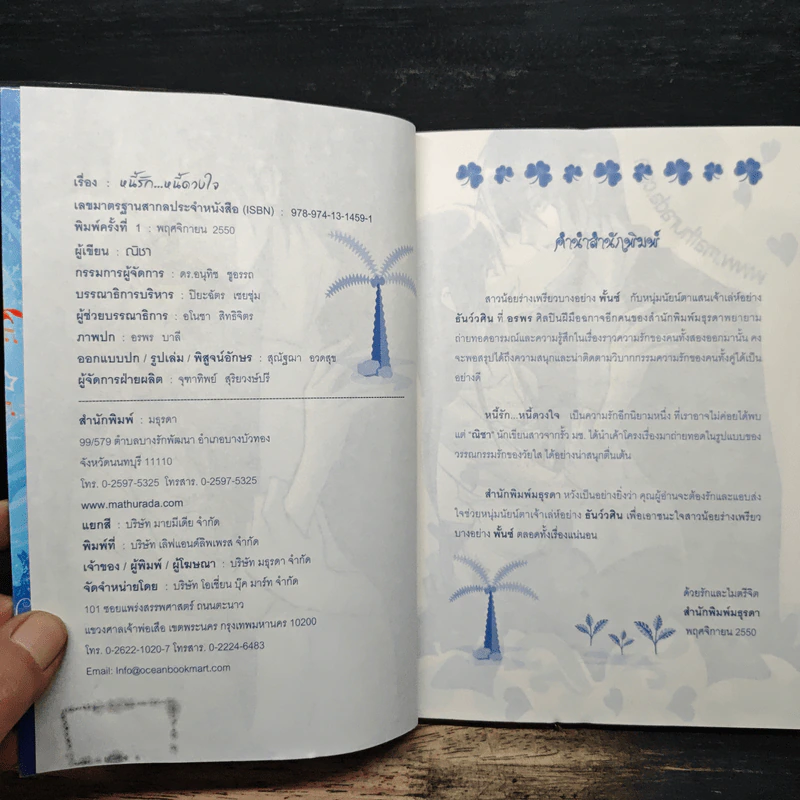 เรื่อง : หนี้รัก...หนี้ดวงใจ
เลขมาตรฐานสากลประจำหนังสือ (ISBN) : 978-974-13-1459-1
พิมพ์ครั้งที่ 1 : พฤศจิกายน 2550
ผู้เขียน : ณิชา
กรรมการผู้จัดการ : ดร.อนุทิช ชูอรรถ
บรรณาธิการบริหาร : ปิยะฉัตร เชยชุ่ม
ผู้ช่วยบรรณาธิการ : อโนชา สิทธิจิตร
ภาพปก : อรพร บาลี
ออกแบบปก / รูปเล่ม / พิสูจน์อักษร : สุณัฐฌา อวดสุข
ผู้จัดการฝ่ายผลิต : จุฑาทิพย์ สุริยวงษ์ปรี
สำนักพิมพ์ : มธุรดา
99/579 ตำบลบางรักพัฒนา อำเภอบางบัวทอง
จังหวัดนนทบุรี 11110
โทร. 0-2597-5325 โทรสาร. 0-2597-5325
www.mathurada.com
แยกสี : บริษัท มายมีเดีย จำกัด
พิมพ์ที่ : บริษัท เลิฟแอนด์ลิพเพรส จำกัด
เจ้าของ / ผู้พิมพ์ / ผู้โฆษณา : บริษัท มธุรดา จำกัด
จัดจำหน่ายโดย : บริษัท โอเชี่ยน บุ๊ค มาร์ท จำกัด
101 ซอยแพร่งสรรพศาสตร์ ถนนตะนาว
แขวงศาลเจ้าพ่อเสือ เขตพระนคร กรุงเทพมหานคร 10200
โทร. 0-2622-1020-7 โทรสาร. 0-2224-6483
Email: Info@oceanbookmart.com
คำนำสำนักพิมพ์
สาวน้อยร่างเพรียวบางอย่าง พั้นซ์ กับหนุ่มนัยน์ตาแสนเจ้าเล่ห์อย่าง
อันว์วศิน ที่ อรพร ศิลปินฝีมือฉกาจอีกคนของสำนักพิมพ์มธุรดาพยายาม
ถ่ายทอดอารมณ์และความรู้สึกในเรื่องราวความรักของคนทั้งสองออกมานั้น คง
จะพอสรุปได้ถึงความสนุกและน่าติดตามวิบากกรรมความรักของคนทั้งคู่ได้เป็น
อย่างดี
หนี้รัก...หนี้ดวงใจ เป็นความรักอีกนิยามหนึ่ง ที่เราอาจไม่ค่อยได้พบ
แต่ "ณิชา" นักเขียนสาวจากรั้ว มช. ได้นำเค้าโครงเรื่องมาถ่ายทอดในรูปแบบของ
วรรณกรรมรักของวัยใส ได้อย่างน่าสนุกตื่นเต้น
สำนักพิมพ์มธุรดา หวังเป็นอย่างยิ่งว่า คุณผู้อ่านจะต้องรักและแอบส่ง
ใจช่วยหนุ่มนัยน์ตาเจ้าเล่ห์อย่าง อันว์วศิน เพื่อเอาชนะใจสาวน้อยร่างเพรียว
บางอย่าง พั้นซ์ ตลอดทั้งเรื่องแน่นอน
ด้วยรักและไมตรีจิต
สำนักพิมพ์มธุรดา
พฤศจิกายน 2550